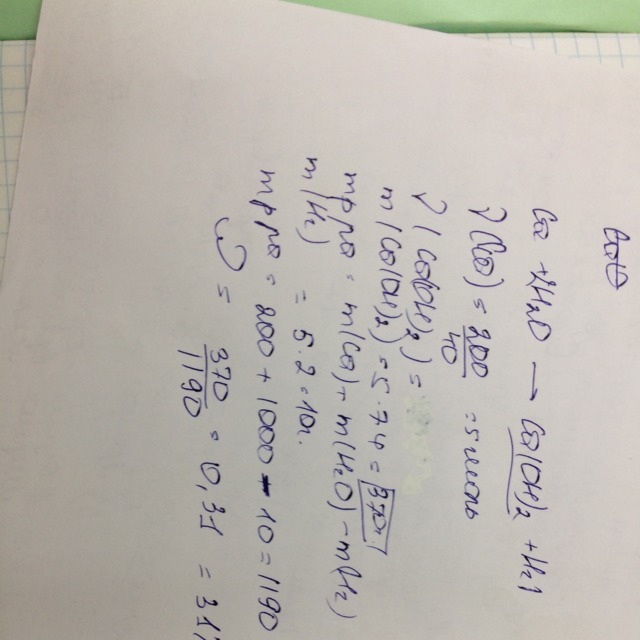 Ca + 2H2O → Ca(OH)2 + H2↑
ν(Ca) = 200/40 = 5 моль
ν(Ca(OH)2) =
m(Ca(OH)2) = 5·74 = 370г.
mр-ра = m(Ca) + m(H2O) - m(H2)
m(H2) = 5·2 = 10г.
mр-ра = 200 + 1000 - 10 = 1190
ω = 370/1190 = 0,31 = 31%